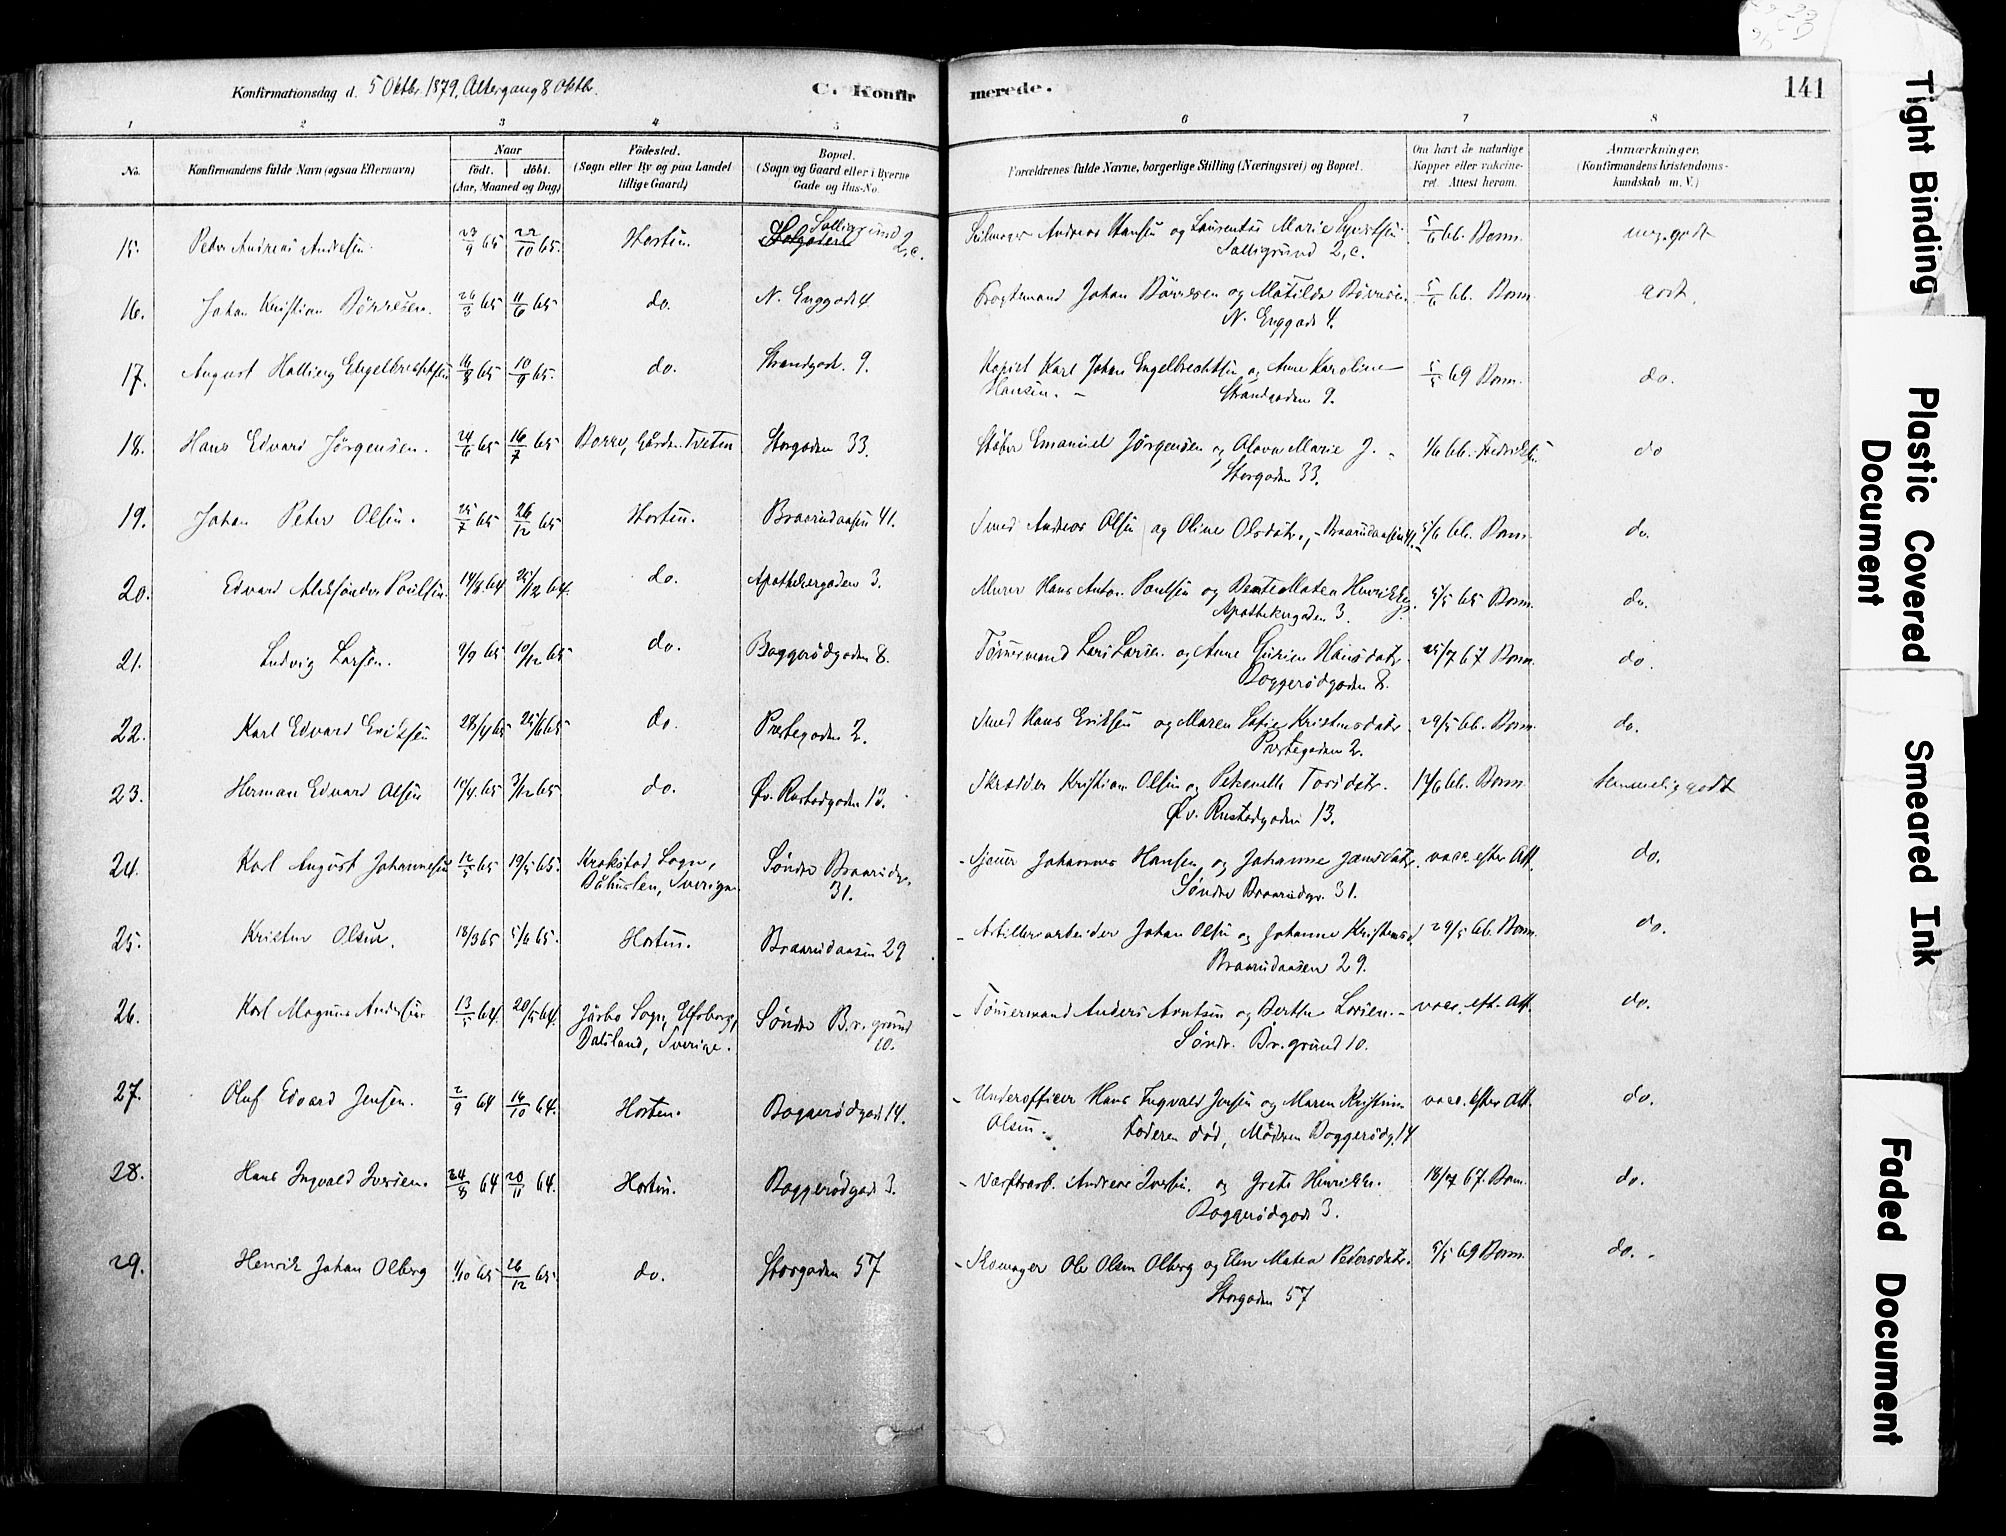 Konfirmationsdag d. 5 Oktbr. 1879. Altergang 8 Oktbr.
C. Konfir
merede.
141
1 2 3 4 5 6 7 8
No.
Konfirmandens fulde Navn (ogsaa Efternavn)
Naar
født. døbt.
(Aar, Maaned og Dag)
Fødested.
(Sogn eller By og paa Landet
tillige Gaard)
Bopæl.
(Sogn og Gaard eller i Byerne
Gade og Hus-No.
Forældrenes fulde Navne, borgerlige Stilling (Næringsvei) og Bopæl.
Om havt de naturlige
Kopper eller vakcine-
ret. Attest herom.
Anmærkninger.
(Konfirmandens Kristendoms-
kundskab m. V.)
15. Peder Andreas Andersen 23/9 65 22/10 65. Horten. Salliggrund 2, c. Andreas Hansen og Laurentse Marie 5/6 66. Borre. meg. godt
Salligrund 2, c.
16. Johan Kristian Börresen. 26/3 65 11/6 65 do. N. Enggade 4 Johan Börresen og Matilde Börresen 5/6 66. Borre. godt.
N. Enggade 4.
17. August Halling Engelbrechtsen 16/8 65 10/9 65. do. Strandgad. 9. Kopist Karl Johan Engelbrechtsen og Anne Karoline 5/5 69 Borre. do.
Hansen. - Strandgaden 9.
18. Hans Edvard Jörgensen. 24/6 65 16/7 65 Borre, Gården Tveten Storgaden 33. Støber Emanuel Jörgensen og Olava Marie J. 1/6 66. do
Storgaden 33.
19. Johan Peter Olsen. 25/7 65 26/12 65 Horten. Braarudaasen 41. Smed Andreas Olsen og Oline Olsdatr., - Braarudaasen 41. 5/6 66. Borre. do.
20. Edvard Aleksander Poulsen. 14/8 64 25/12 64. do. Apothekergaden 3. Murer Hans Anton Poulsen og Bente Matea 5/5 65 Borre. do.
Apothekergaden 3.
21. Ludvig Larsen. 9/9 65 10/12 65 do. Baggerödgaden 8. Tømmermand Lars Larsen og Anne Gurine Hansdatr. 25/7 67 Borre. do.
Baggerödgaden 8.
22. Karl Edvard Eriksen 28/4 65 25/6 65 do. Prestegaden 2. Smed Hans Eriksen og Maren Sofie Kristensdatr. 29/5 66. Borre. do.
Prestegaden 2.
23. Herman Edvard Olsen 3/12 65 do. Øv. Rustadgaden 13. Skrædder Kristian Olsen og Petronelle 14/6 66. Borre temmelig godt
Øv. Rustadgaden 13.
24. Karl August Johannesen 12/5 65 19/5 65. Krokstad Sogn, Søndre Braarudgr. - Sjauer Johannes Hansen og Johanne Jensdatr. vacc. efter Att. do.
Båhuslen, Sverige. 31. Söndre Braarudgr. 31.
25. Kristen Olsen. 18/3 65 5/6 65. Horten. Braarudaasen 29 - Artilleriarbeider Johan Olsen og Johanne Kristensd. 29/5 66. Borre. do.
Braarudaasen 29.
26. Karl Magnus Andersen 13/5 64. 20/5 64. Järbo Sogn, Elfsborg, Søndre Br. grund - Tømmermand Anders Arntsen og Berthe Larsen. - vacc. eft. Att. do.
Dalsland, Sverige. 10. Söndr. Br. grund 10.
27. Oluf Edvard Jensen. 2/9 64 16/10 64. Horten. Baggerödgad. 14. - Underofficer Hans Ingvald Jensen og Maren Kristine vacc. efter Att. do.
Olsen. - Faderen död, Mödren Baggerödg. 14
28. Hans Ingvald Iversen. 24/8 64 20/11 64. Horten. Baggerødgad. 3. - Værftsarb. Andreas Iversen. og Grete Henrikke. 18/7 67. Borre. do.
Baggerødgad. 3.
29. Henrik Johan Olberg 1/10 65 26/12 65. do. Storgaden 57 - Skomager Ole Olsen Olberg og Elen Matea Pedersdatr. 5/5 69 Borre. do. -
Storgaden 57
Tight Binding
Plastic Covered
Document
Smeared Ink
Faded Document